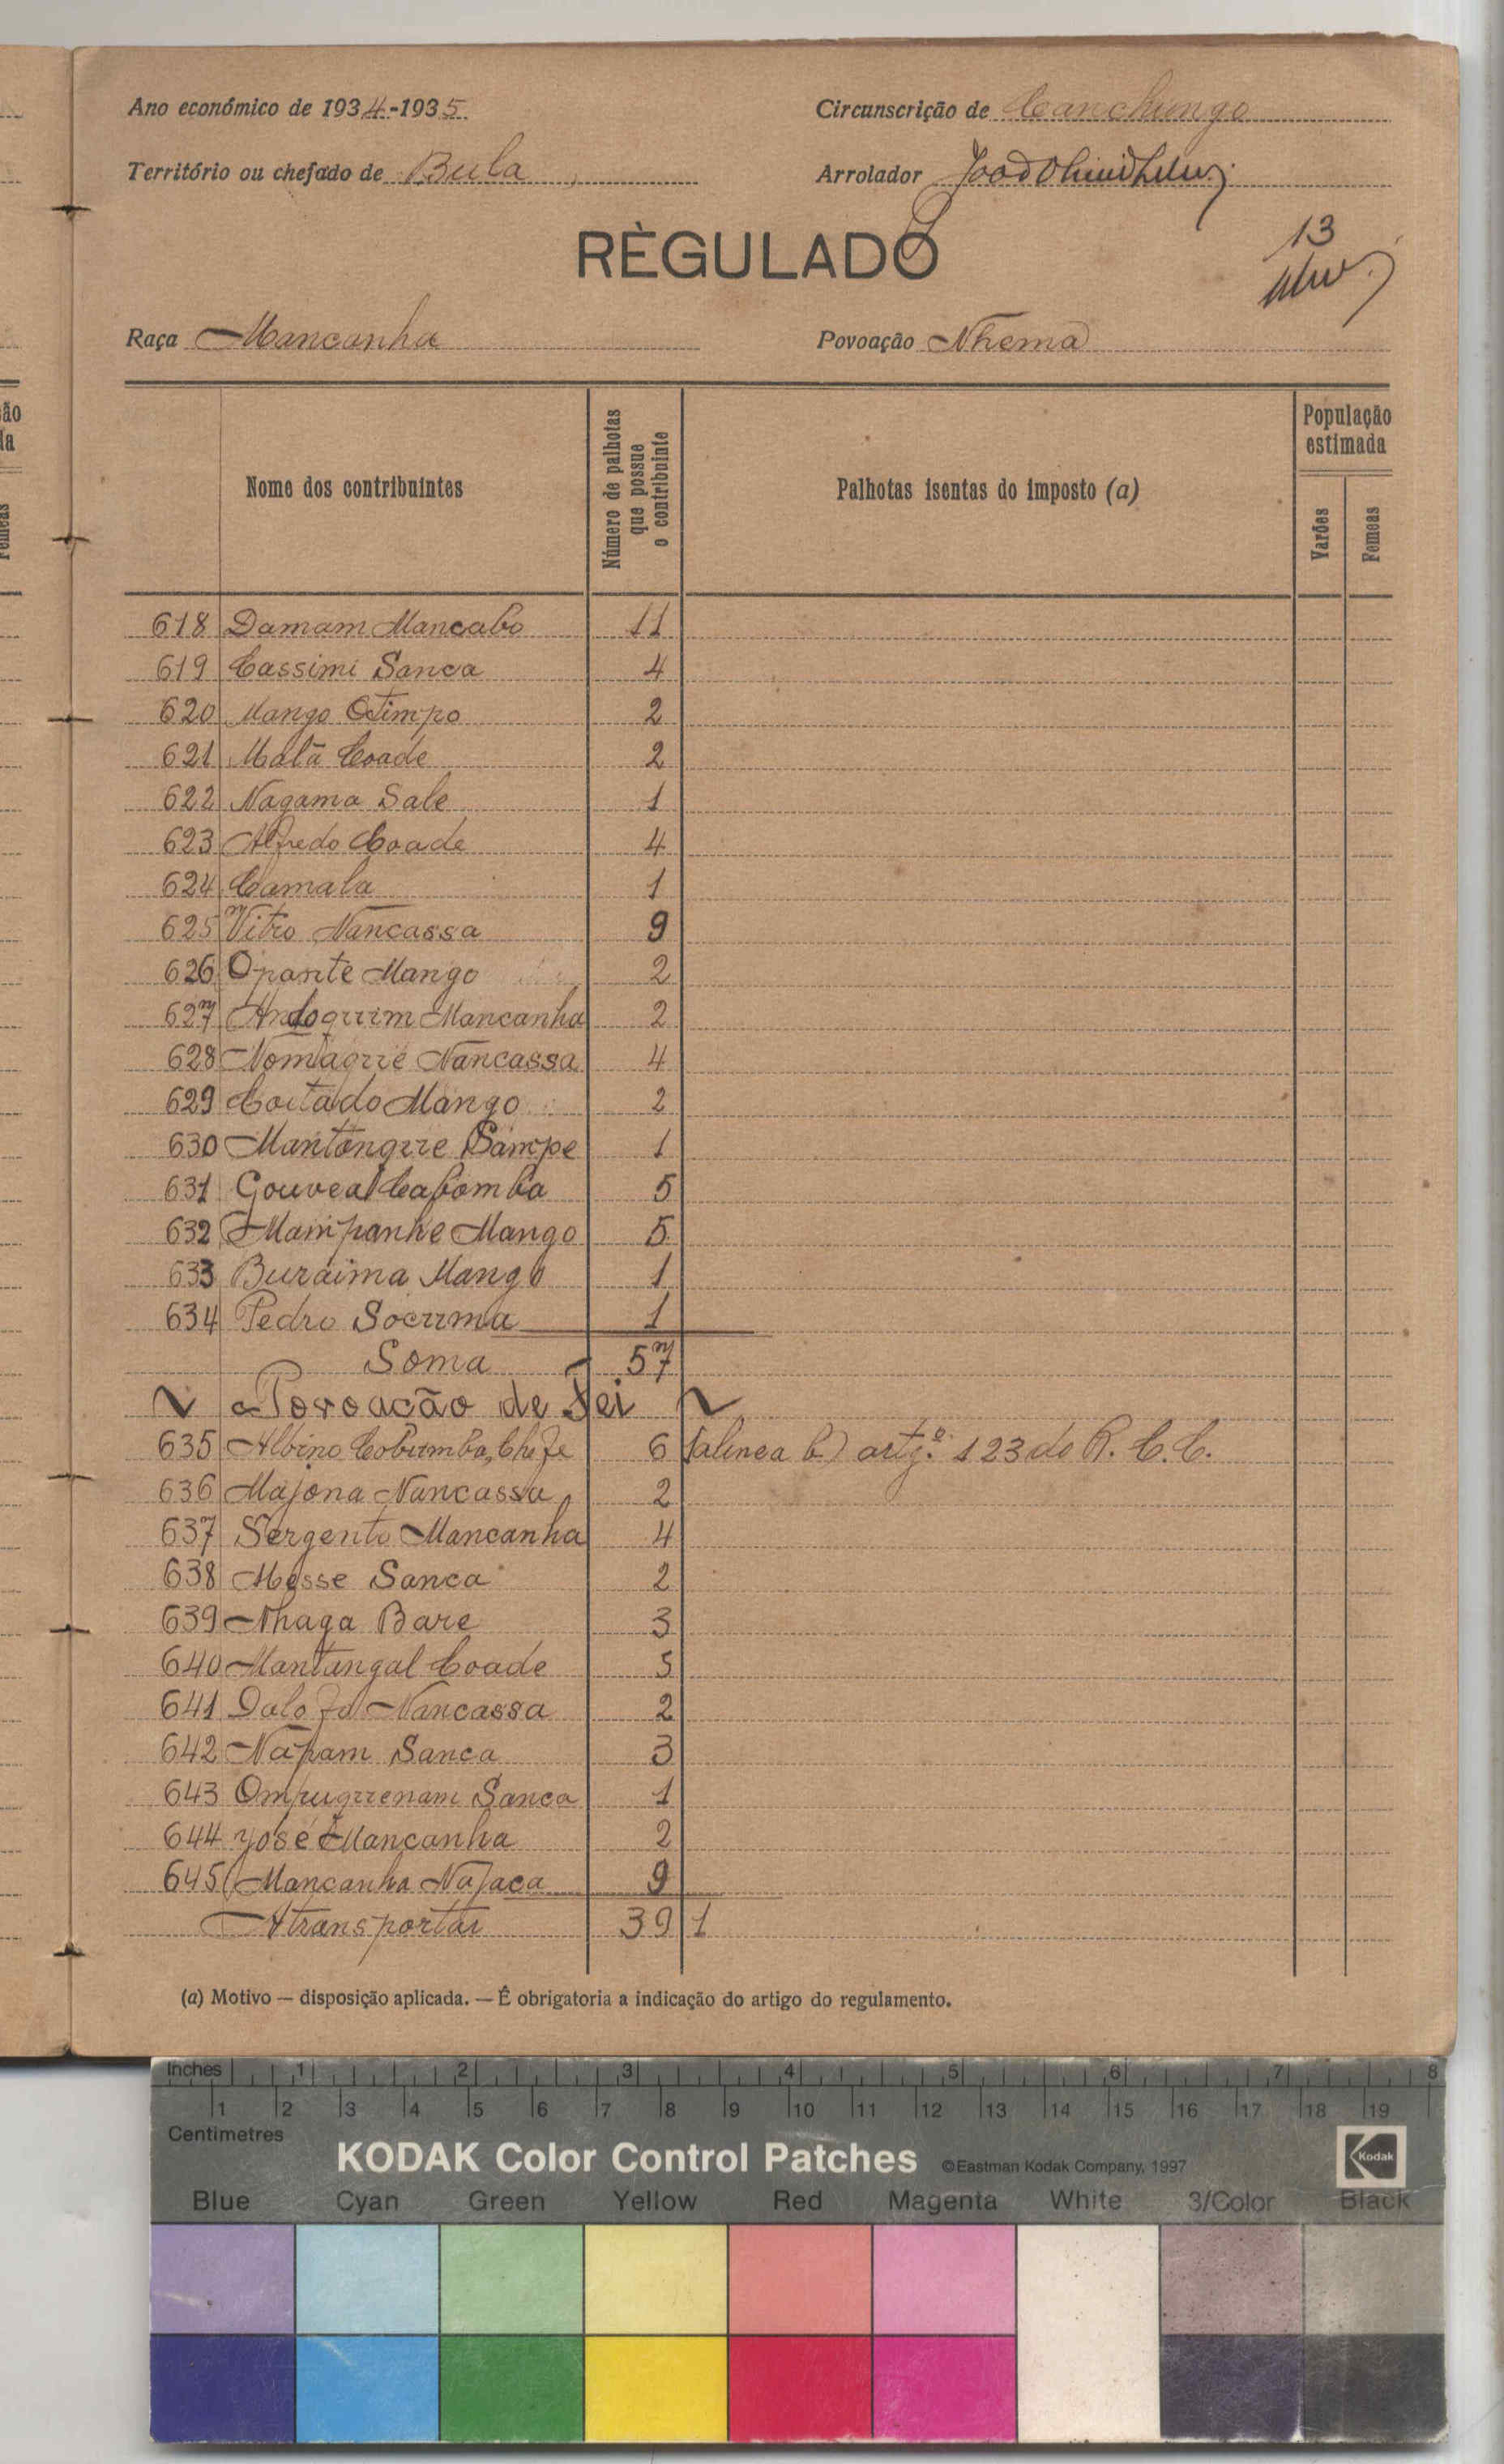 Ano económico de 1934-1935
Circunscrição de Canchungo
Território ou chefado de Bula
Arrolador
13
RÈGULADO
Raça Mancanha
Povoação Nhema
Nome dos contribuintes
Número de palhotas que possue o contribuinte
Palhotas isentas do imposto (a)
População estimada
Varões
Femeas
618 Damam Mancabo 11
619 Cassimi Sanca 4
620 Mango Otimpo 2
621 Malã Coade 2
622 Nagama Sale 1
623 Alfredo Coade 4
624 Camala 1
625 Vitro Nancassa 9
626 Opante Mango 2
627 Andoquim Mancanha 2
628 Nomaque Nancassa 4
629 Coitado Mango 2
630 Mantangue Sampe 1
631 Gouvea Cabomba 5
632 Mampanhe Mango 5
633 Buraima Mango 1
634 Pedro Socuma 1
Soma 57
Povoação de Fei
635 Albino Cobumba, Chefe 6 (alinea b) artg.º 123 do R. C. C.
636 Majona Nancassa 2
637 Sergento Mancanha 4
638 Messe Sanca 2
639 Nhaga Bare 3
640 Mantangal Coade 5
641 Dalofa Nancassa 2
642 Napam Sanca 3
643 Ompuguenam Sanca 1
644 José Mancanha 2
645 Mancanha Najaca 9
A transportar 39 1
(a) Motivo — disposição aplicada. — É obrigatoria a indicação do artigo do regulamento.
Inches 1 2 3 4 5 6 7 8
1 2 3 4 5 6 7 8 9 10 11 12 13 14 15 16 17 18 19
Centimetres
KODAK Color Control Patches ©Eastman Kodak Company, 1997 Kodak
Blue Cyan Green Yellow Red Magenta White 3/Color Black